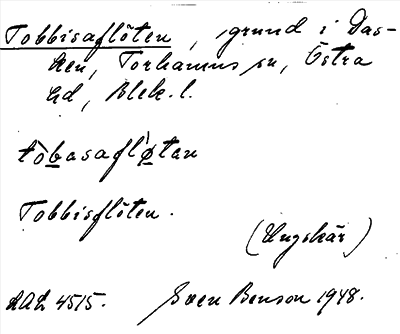 Tobbisaflöten, grund i Das-
ken, Torhamns sn, Östra
hd, Blek. l.
tòbasafløtan
Tobbisflöten.
(Ungskär)
LAL 4515. Sven Benson 1948.